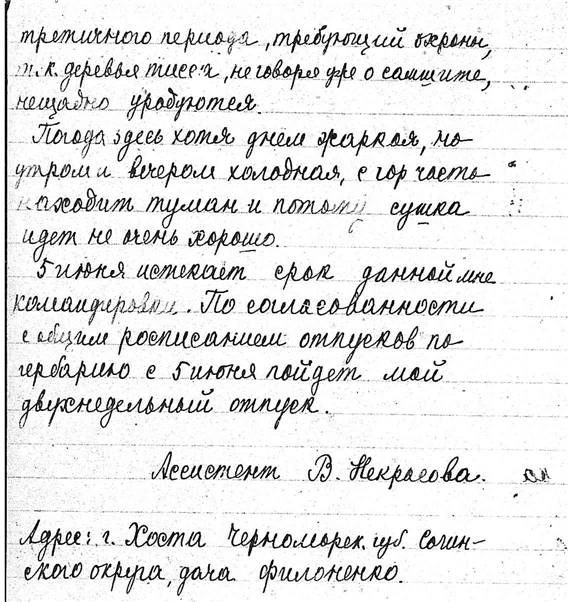 третичного периода, требующий охраны,
т.к. деревья тисса, не говоря уже о самшите,
нещадно уродуются.
Погода здесь хотя днем жаркая, но
утром и вечером холодная, с гор часто
находит туман и потому сушка
идет не очень хорошо.
5 июня истекает срок данной мне
командировки. По согласованности
с общим росписанием отпусков по
гербарию с 5 июня пойдет мой
двухнедельный отпуск.
Ассистент В. Некрасова.
Адрес: г. Хоста Черноморск. губ. Сочин-
ского округа, дача Филоненко.